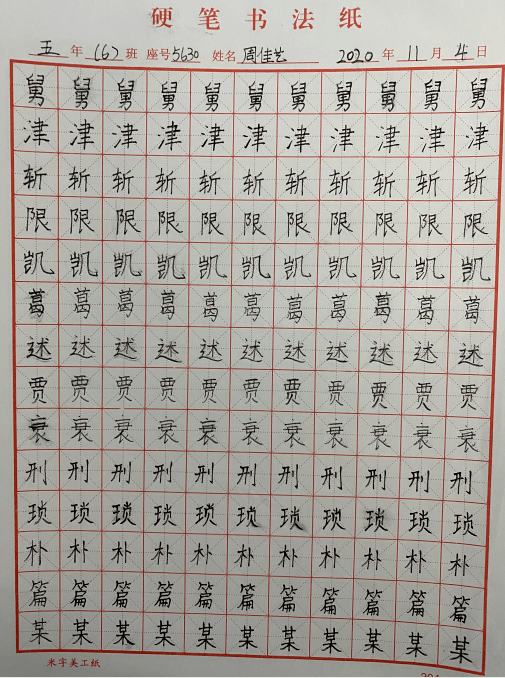 硬笔书法纸
五年(6)班 座号5630 姓名周佳艺 2020年11月4日
舅舅舅舅舅舅舅舅舅舅舅
津津津津津津津津津津津
斩斩斩斩斩斩斩斩斩斩斩
限限限限限限限限限限限
凯凯凯凯凯凯凯凯凯凯凯
葛葛葛葛葛葛葛葛葛葛葛
述述述述述述述述述述述
贾贾贾贾贾贾贾贾贾贾贾
衰衰衰衰衰衰衰衰衰衰衰
刑刑刑刑刑刑刑刑刑刑刑
琐琐琐琐琐琐琐琐琐琐琐
朴朴朴朴朴朴朴朴朴朴朴
篇篇篇篇篇篇篇篇篇篇篇
某某某某某某某某某某某
米字美工纸